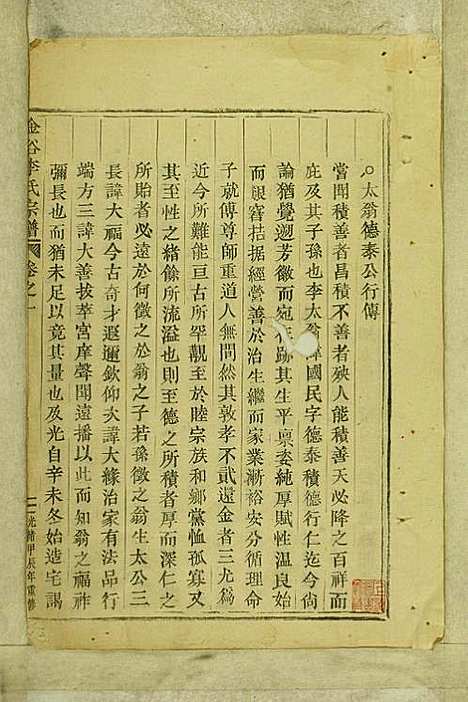 太翁德泰公行傳
嘗聞積善者昌積不善者殃人能積善天必降之百祥而
庇及其子孫也李太翁諱國民字德泰積德行仁迄今尚
論猶覺遡芳徽而宛在跡其生平禀委純厚賦性温良始
而艱窘拮据經營善於治生繼而家業漸裕安分循理命
子就傅尊師重道人無間然其敦孝不貳還金者三尤為
近今所難能亘古所罕覯至於睦宗族和鄉黨恤孤寡又
其至性之緒餘所流溢也則至德之所積者厚而深仁之
所貽者必遠於何徵之於翁之子若孫徵之翁生太公三
長諱大福今古奇才遐邇欽仰次諱大緣治家有法品行
端方三諱大善拔萃宮庠聲聞遠播以此而知翁之福祚
彌長也而猶未足以竟其量也及光自辛未冬始造宅謁
金谷李氏宗譜 卷之一 光緒甲辰年重修